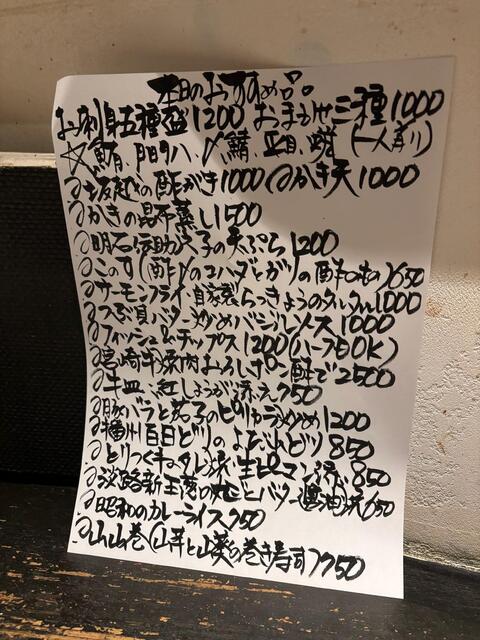 本日のおすすめ品。
お刺身五種盛1200 おまかせ三種1000
☆鮪、門門ハ、〆鯖、
◎坂越の酢がき1000 ◎かき天1000
◎かきの昆布蒸し1500
◎明石 子の天ぷら1200
◎このす(酢〆のコハダとガリの酢のもの)650
◎サーモンフライ、自家製らっきょうのタルタル1000
◎つぶ貝バター炒めバジルソース1000
◎フィッシュ&チップス1200(ハーフもOK)
◎宮崎牛焼肉おろしポン酢で2500
◎牛皿、紅しょうが添え750
◎豚バラと茄子のピリ辛ラー炒め1200
◎播州百日どりのよだれどり850
◎とりつくねタレ焼、生ピーマン添え850
◎淡路新玉葱の丸ごとバター醤油焼650
◎昭和のカレーライス750
◎山山巻(山芋と山葵の巻き寿司)750